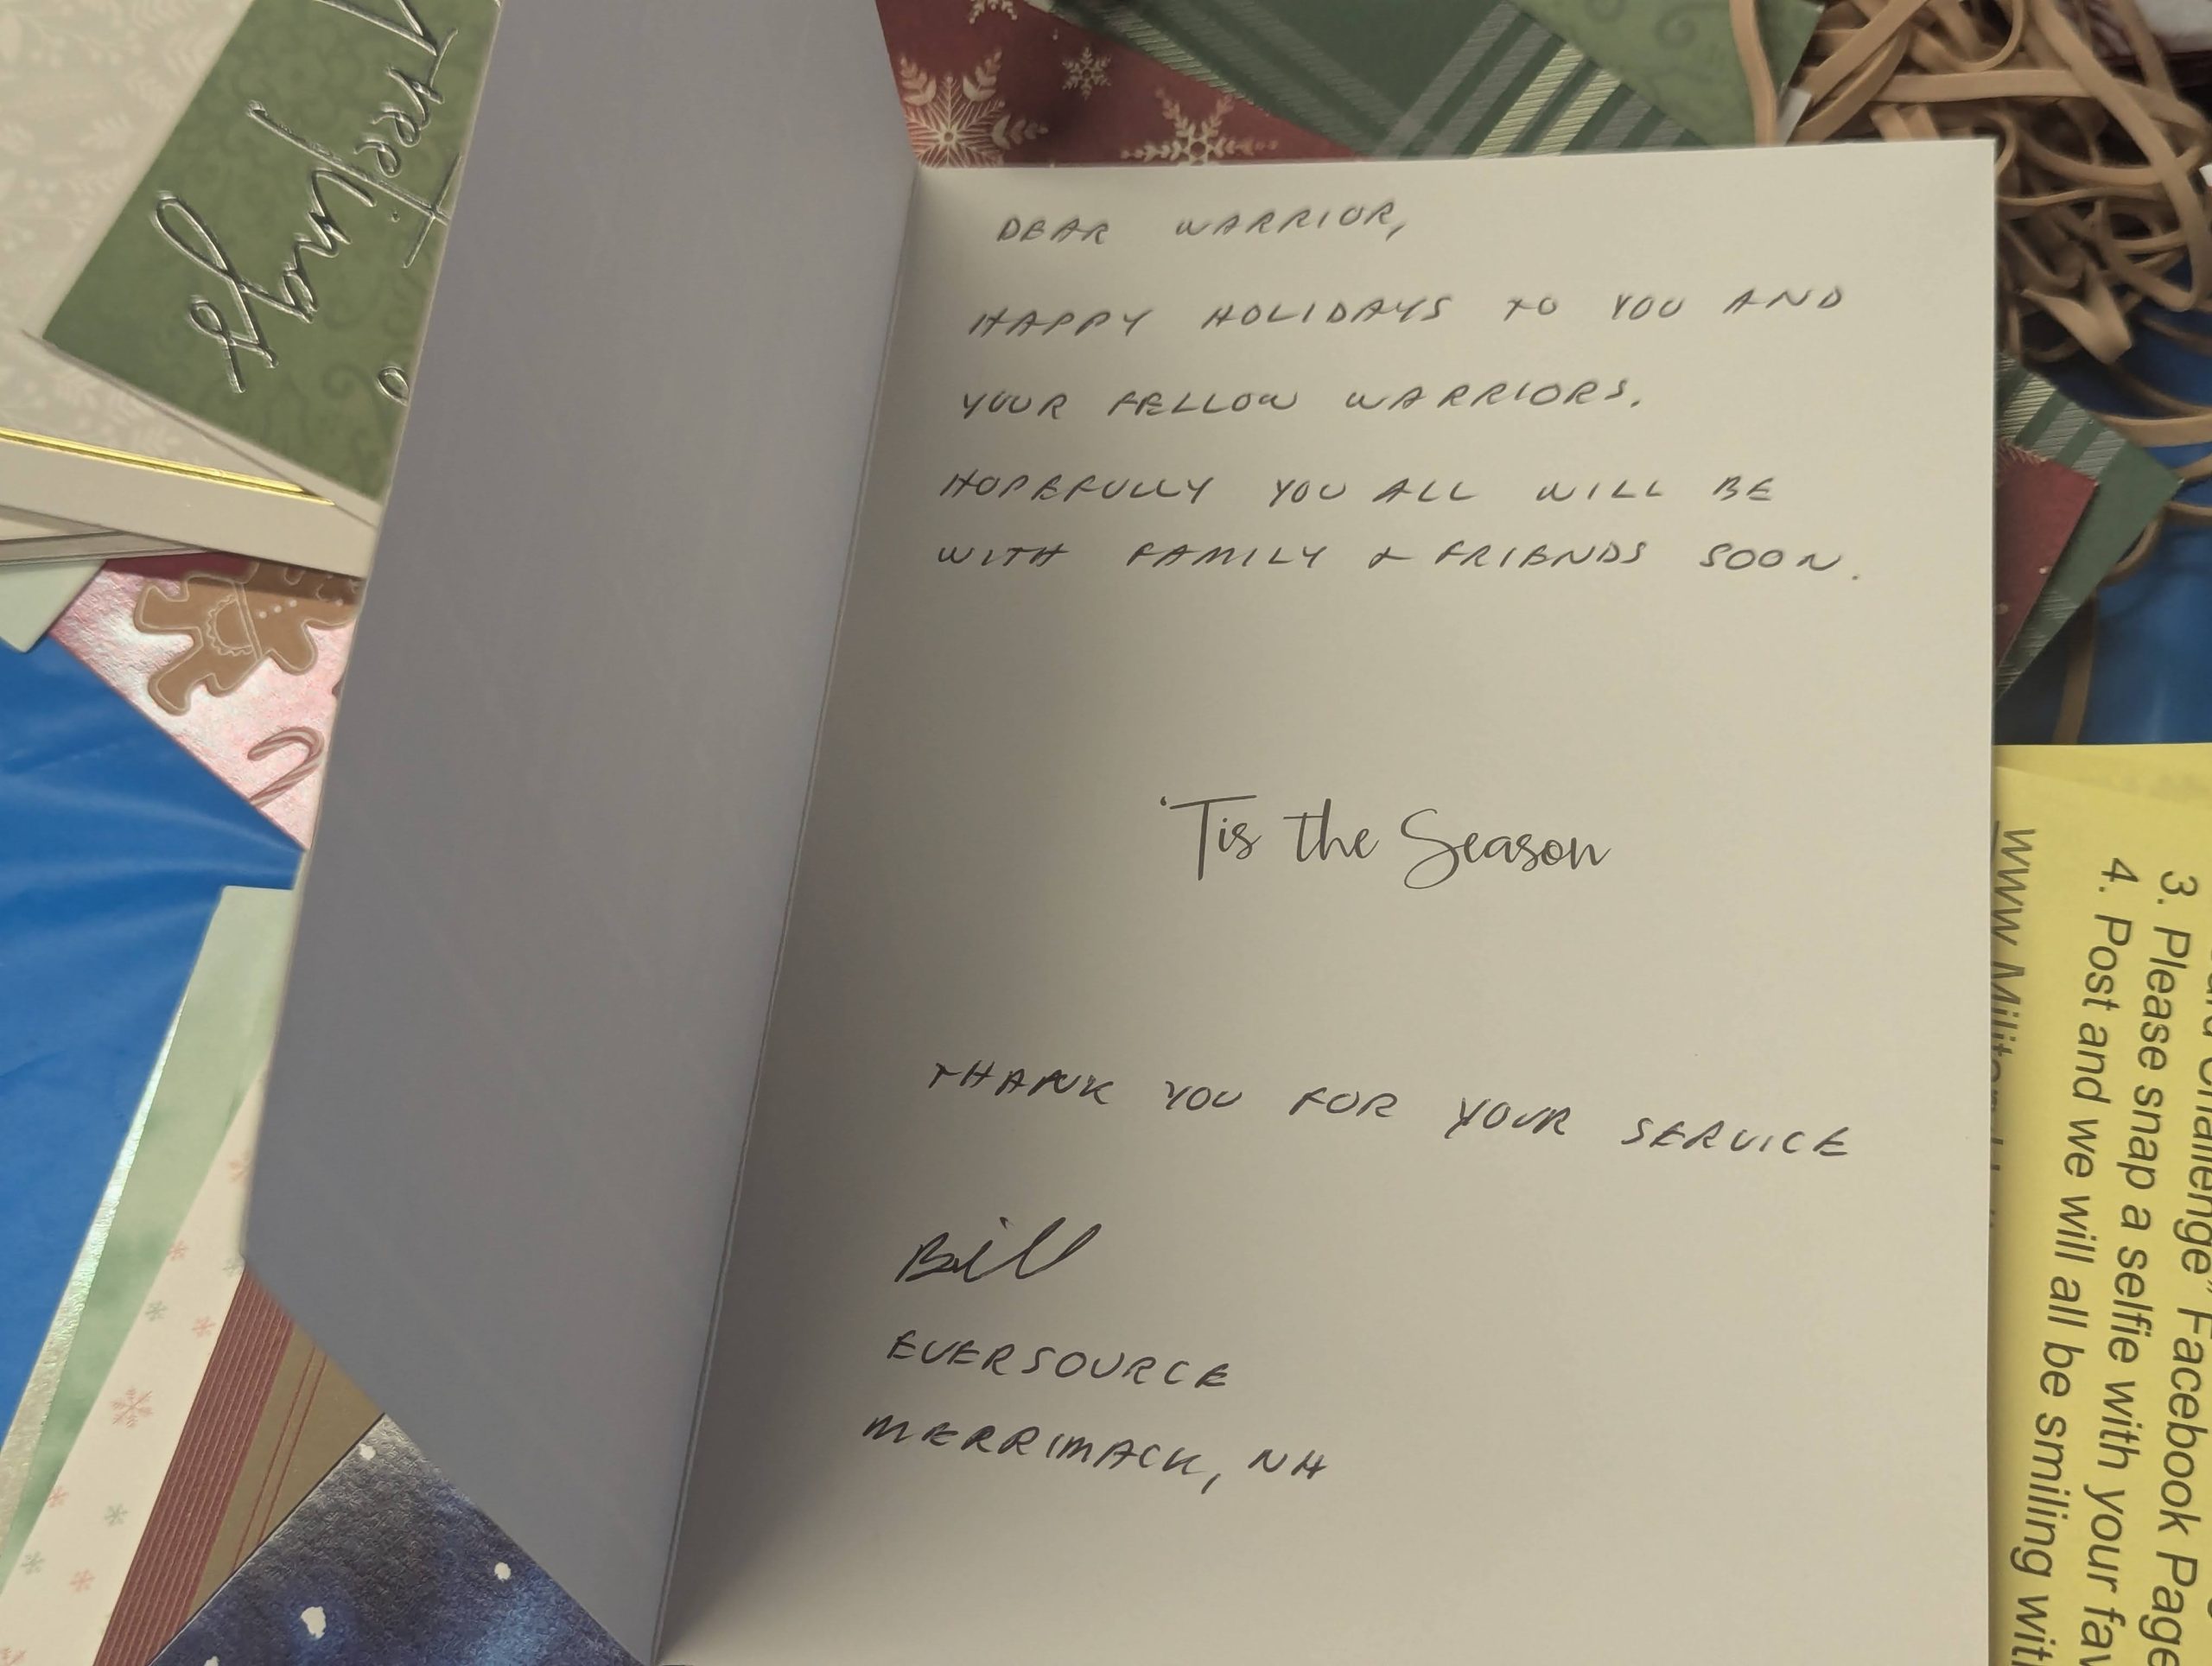 Greetings
DEAR WARRIOR,
HAPPY HOLIDAYS TO YOU AND
YOUR FELLOW WARRIORS.
HOPEFULLY YOU ALL WILL BE
WITH FAMILY & FRIENDS SOON.
'Tis the Season
THANK YOU FOR YOUR SERVICE
Bill
EVERSOURCE
MERRIMACK, NH
Challenge" Facebook Page
3. Please snap a selfie with your fav
4. Post and we will all be smiling wit